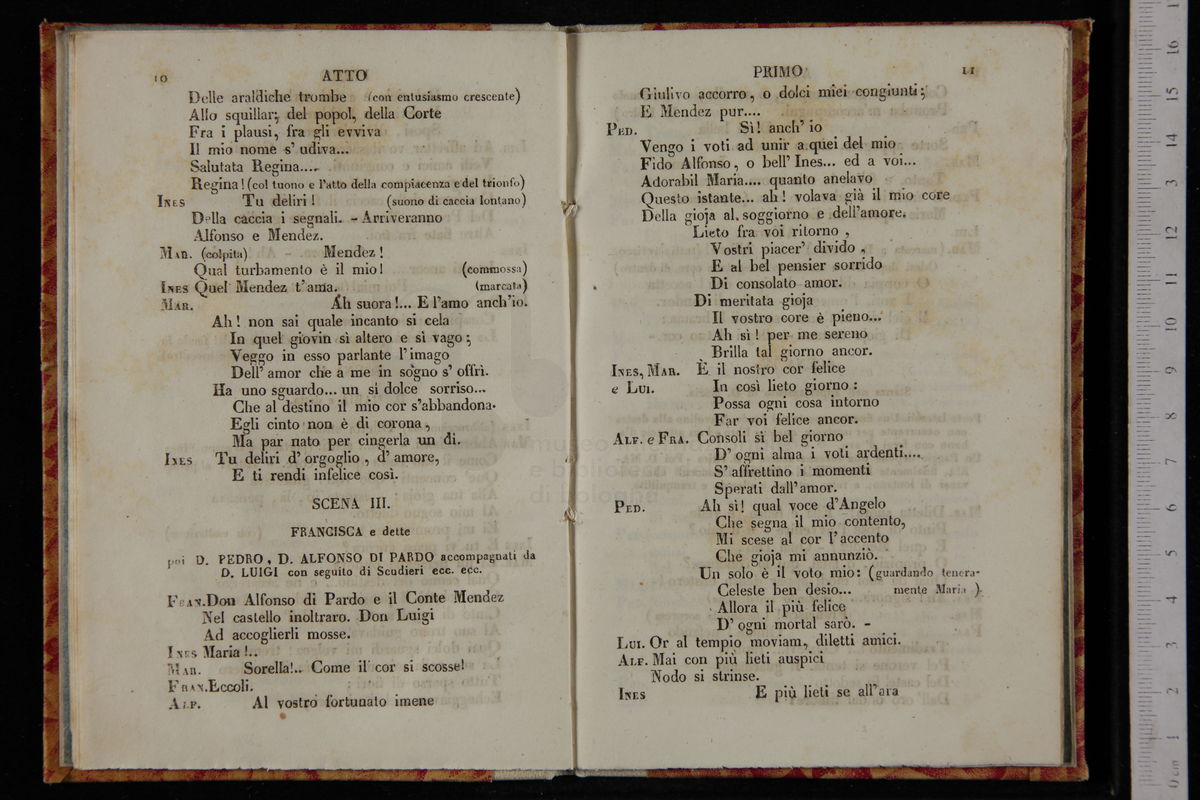 10 ATTO
Delle araldiche trombe (con entusiasmo crescente)
Allo squillar; del popol, della Corte
Fra i plausi, fra gli evviva
Il mio nome s' udiva...
Salutata Regina....
Regina! (col tuono e l'atto della compiacenza e del trionfo)
INES Tu deliri! (suono di caccia lontano)
Della caccia i segnali. - Arriveranno
Alfonso e Mendez.
MAR. (colpita) Mendez!
Qual turbamento è il mio! (commossa)
INES Quel Mendez t'ama. (marcata)
MAR. Ah suora!... E l'amo anch'io.
Ah! non sai quale incanto si cela
In quel giovin sì altero e sì vago;
Veggo in esso parlante l'imago
Dell' amor che a me in sogno s' offrì.
Ha uno sguardo... un sì dolce sorriso...
Che al destino il mio cor s'abbandona.
Egli cinto non è di corona,
Ma par nato per cingerla un dì.
INES Tu deliri d' orgoglio, d' amore,
E ti rendi infelice così.
SCENA III.
FRANCISCA e dette
poi D. PEDRO, D. ALFONSO DI PARDO accompagnati da
D. LUIGI con seguito di Scudieri ecc. ecc.
FRAN. Don Alfonso di Pardo e il Conte Mendez
Nel castello inoltraro. Don Luigi
Ad accoglierli mosse.
INES Maria!..
MAR. Sorella!.. Come il cor si scosse!
FRAN. Eccoli.
ALF. Al vostro fortunato imene
PRIMO 11
Giulivo accorro, o dolci miei congiunti;
E Mendez pur....
PED. Sì! anch' io
Vengo i voti ad unir a quei del mio
Fido Alfonso, o bell' Ines... ed a voi...
Adorabil Maria.... quanto anelavo
Questo istante... ah! volava già il mio core
Della gioja al soggiorno e dell'amore.
Lieto fra voi ritorno,
Vostri piacer' divido,
E al bel pensier sorrido
Di consolato amor.
Di meritata gioja
Il vostro core è pieno...
Ah sì! per me sereno
Brilla tal giorno ancor.
INES, MAR. E il nostro cor felice
e LUI. In così lieto giorno:
Possa ogni cosa intorno
Far voi felice ancor.
ALF. e FRA. Consoli sì bel giorno
D' ogni alma i voti ardenti....
S' affrettino i momenti
Sperati dall' amor.
PED. Ah sì! qual voce d'Angelo
Che segna il mio contento,
Mi scese al cor l'accento
Che gioja mi annunziò.
Un solo è il voto mio: (guardando tenera-
Celeste ben desio... mente Maria).
Allora il più felice
D' ogni mortal sarò. -
LUI. Or al tempio moviam, diletti amici.
ALF. Mai con più lieti auspici
Nodo si strinse.
INES E più lieti se all'ara